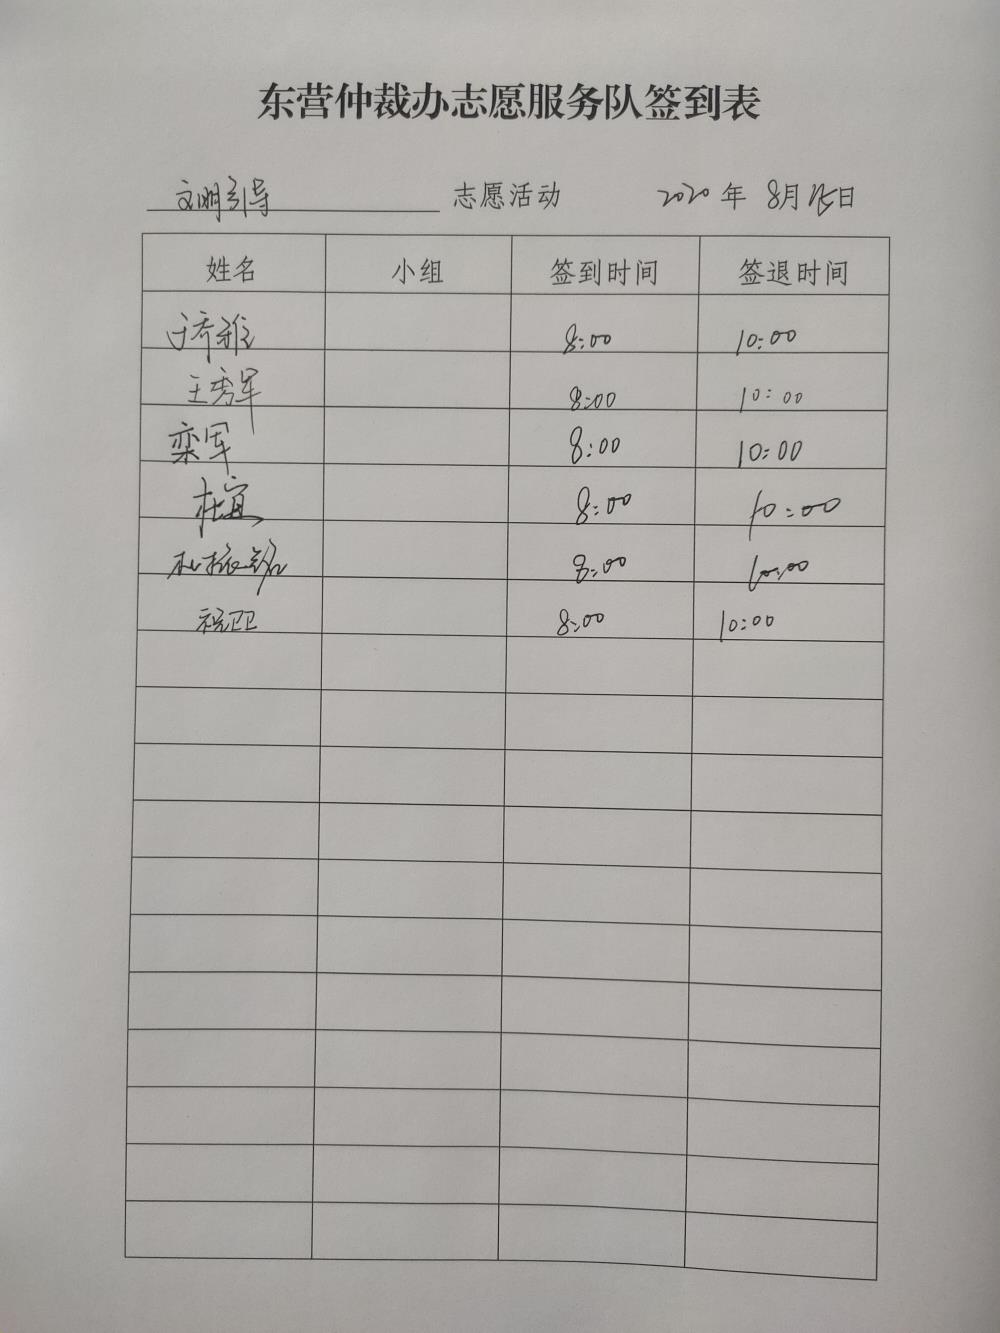 东营仲裁办志愿服务队签到表
文明引导 志愿活动 2020 年 8月 日
姓名 小组 签到时间 签退时间
于乔雅 8:00 10:00
王秀军 8:00 10:00
栾军 8:00 10:00
杜宜 8:00 10:00
8:00 10:00
祝卫卫 8:00 10:00